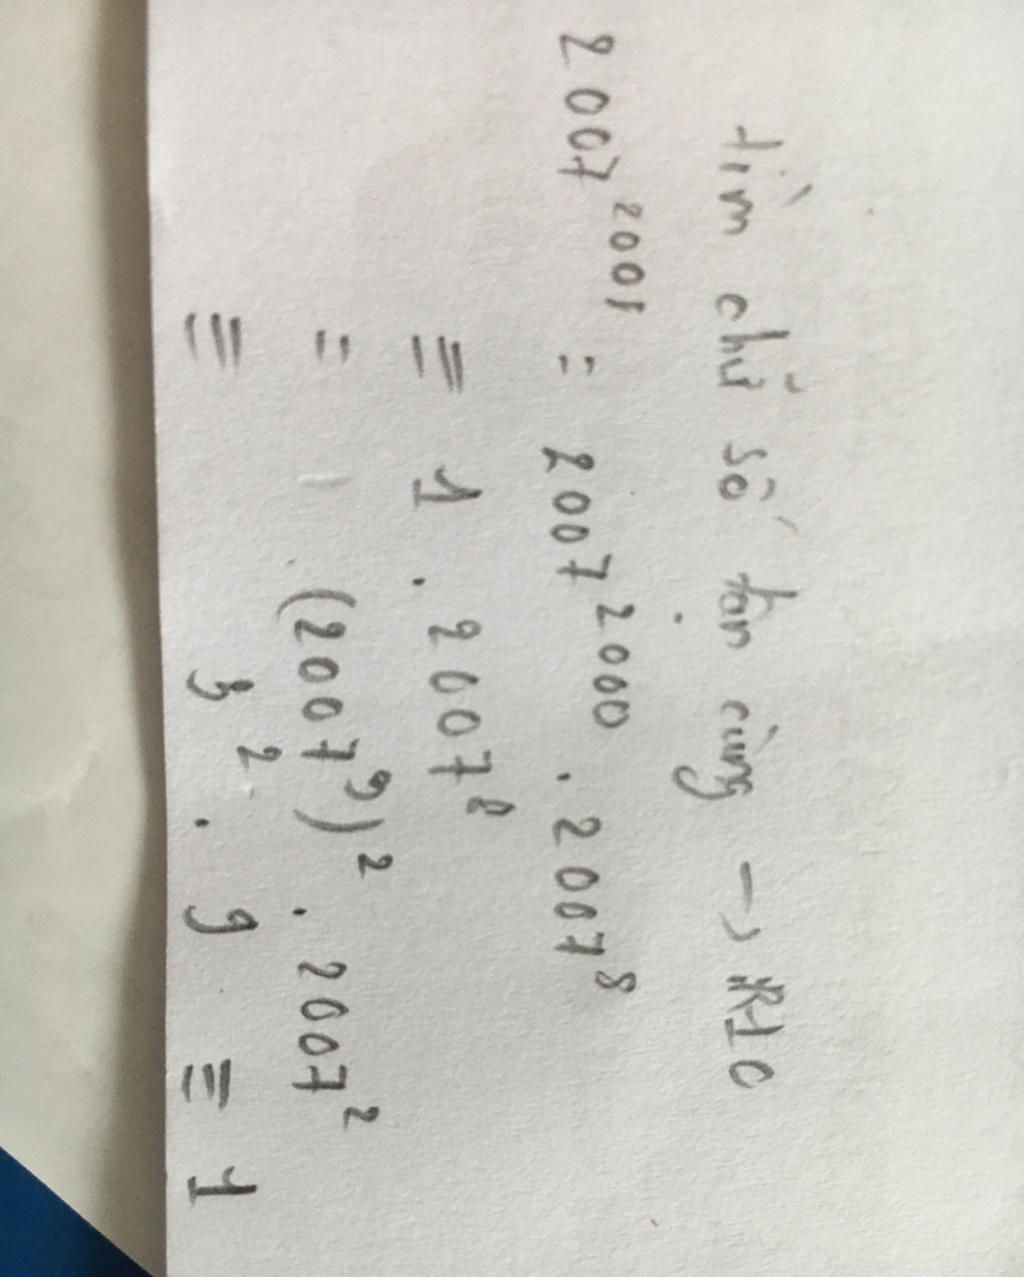 tìm chữ số tận cùng → R10
2007²⁰⁰⁸ = 2007²⁰⁰⁰ . 2007⁸
≡ 1 . 2007⁸
= (2007³)² . 2007²
≡ 3² . 9 ≡ 1